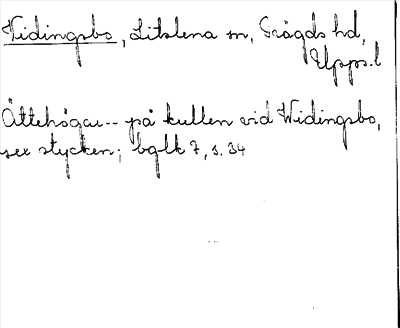 Vidingsbo, Litslena sn, Trögds hd,
Upps. l
Ättehögar -- på kullen vid Widingsbo,
sex stycken; bglk 7, s. 34